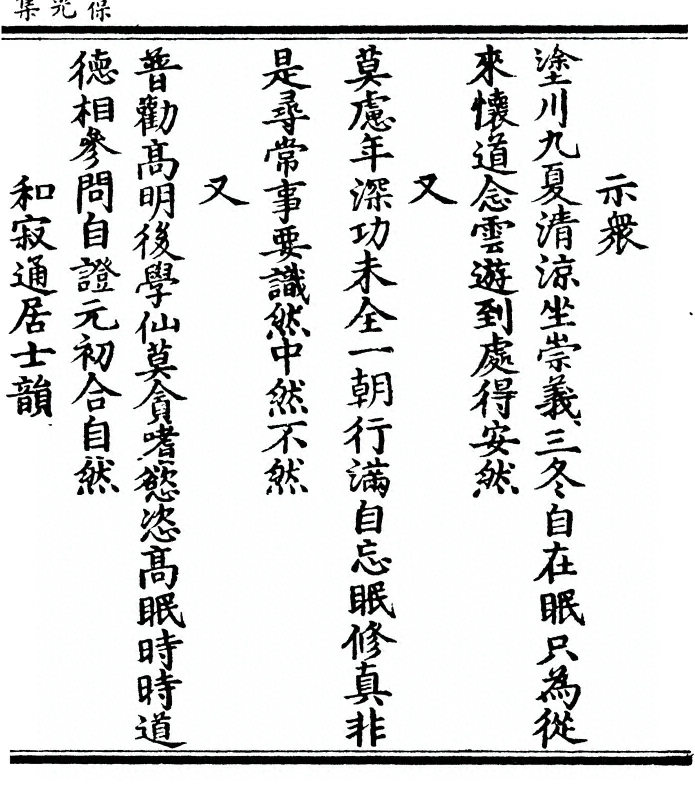 葆光集
示衆
塗川九夏清涼坐崇義三冬自在眠只為從
來懷道念雲遊到處得安然
又
莫慮年深功未全一朝行滿自忘眠修真非
是尋常事要識然中然不然
又
普勸高明後學仙莫貪嗜慾恣高眠時時道
德相參問自證元初合自然
和寂通居士韻